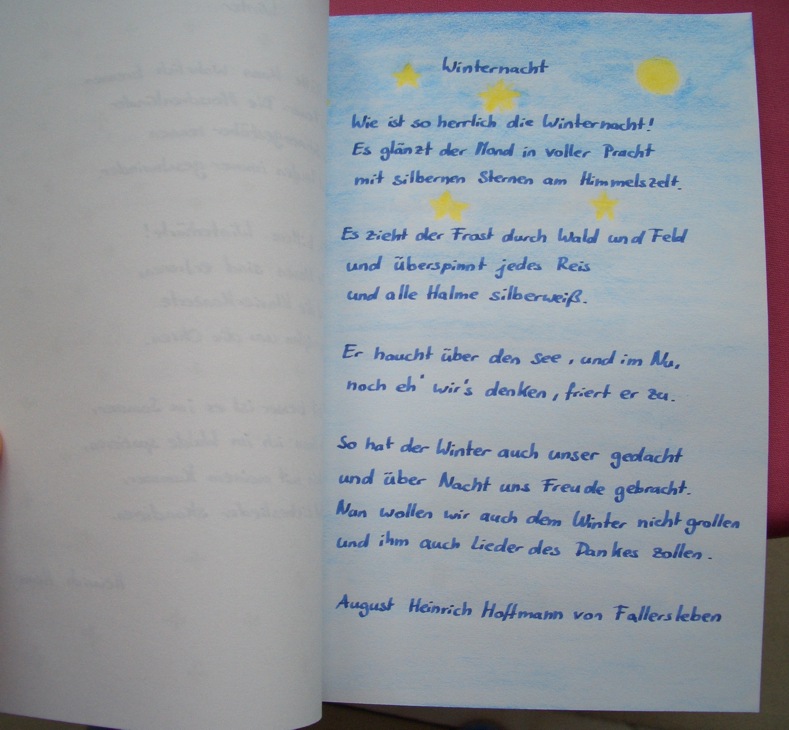 Winternacht
Wie ist so herrlich die Winternacht!
Es glänzt der Mond in voller Pracht
mit silbernen Sternen am Himmelszelt.
Es zieht der Frost durch Wald und Feld
und überspinnt jedes Reis
und alle Halme silberweiß.
Er haucht über den See, und im Nu,
noch eh' wir's denken, friert er zu.
So hat der Winter auch unser gedacht
und über Nacht uns Freude gebracht.
Nun wollen wir auch dem Winter nicht grollen
und ihm auch Lieder des Dankes zollen.
August Heinrich Hoffmann von Fallersleben